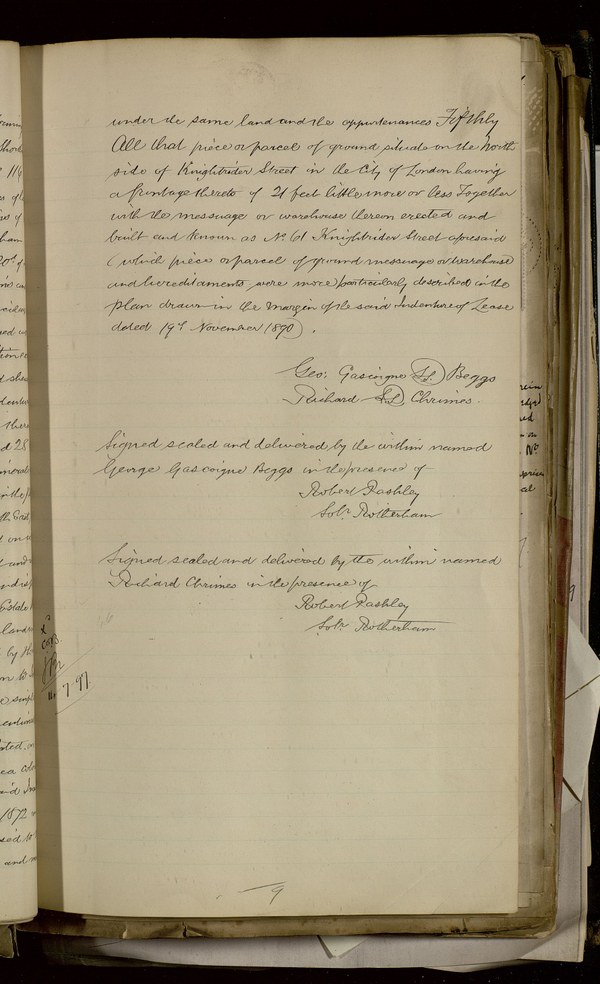 under the same land and the appurtenances Fifthly
All that piece or parcel of ground situate on the North
side of Knightrider Street in the City of London having
a frontage thereto of 21 feet little more or less Together
with the messuage or warehouse thereon erected and
built and known as No. 61 Knightrider Street aforesaid
(which piece or parcel of ground messuage or warehouse
and hereditaments were more particularly described in the
plan drawn in the margin of the said Indenture of Lease
dated 19th November 1870).
Geo: Gascoigne LS. Beggs
Richard LS Chrimes.
Signed sealed and delivered by the within named
George Gascoigne Beggs in the presence of
Robert Pashley
Solr. Rotherham
Signed sealed and delivered by the within named
Richard Chrimes in the presence of
Robert Pashley
Solr. Rotherham
7.97
9